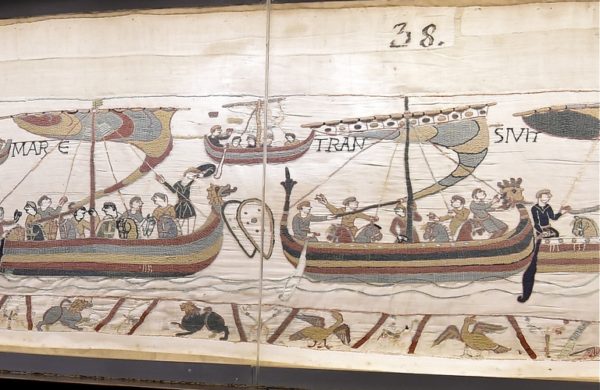 38.
MARE TRANSIVIT